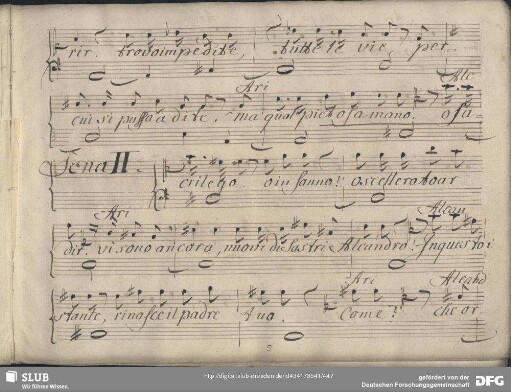 rir. trovo impedite, tutte le vie, per
Ari Ale
cui si passa a dite. ma qual pietosa mano. o sa=
Scena II.
crilego o insanno! o scellerato ar
Ari Alcan
dir. vi sono ancora, nuovi disastri Alcandro! In questo i
Ari Alcand
stante, rinasce il padre tuo. Come! che or
5
SLUB
Wir führen Wissen.
gefördert von der
Deutschen Forschungsgemeinschaft
DFG